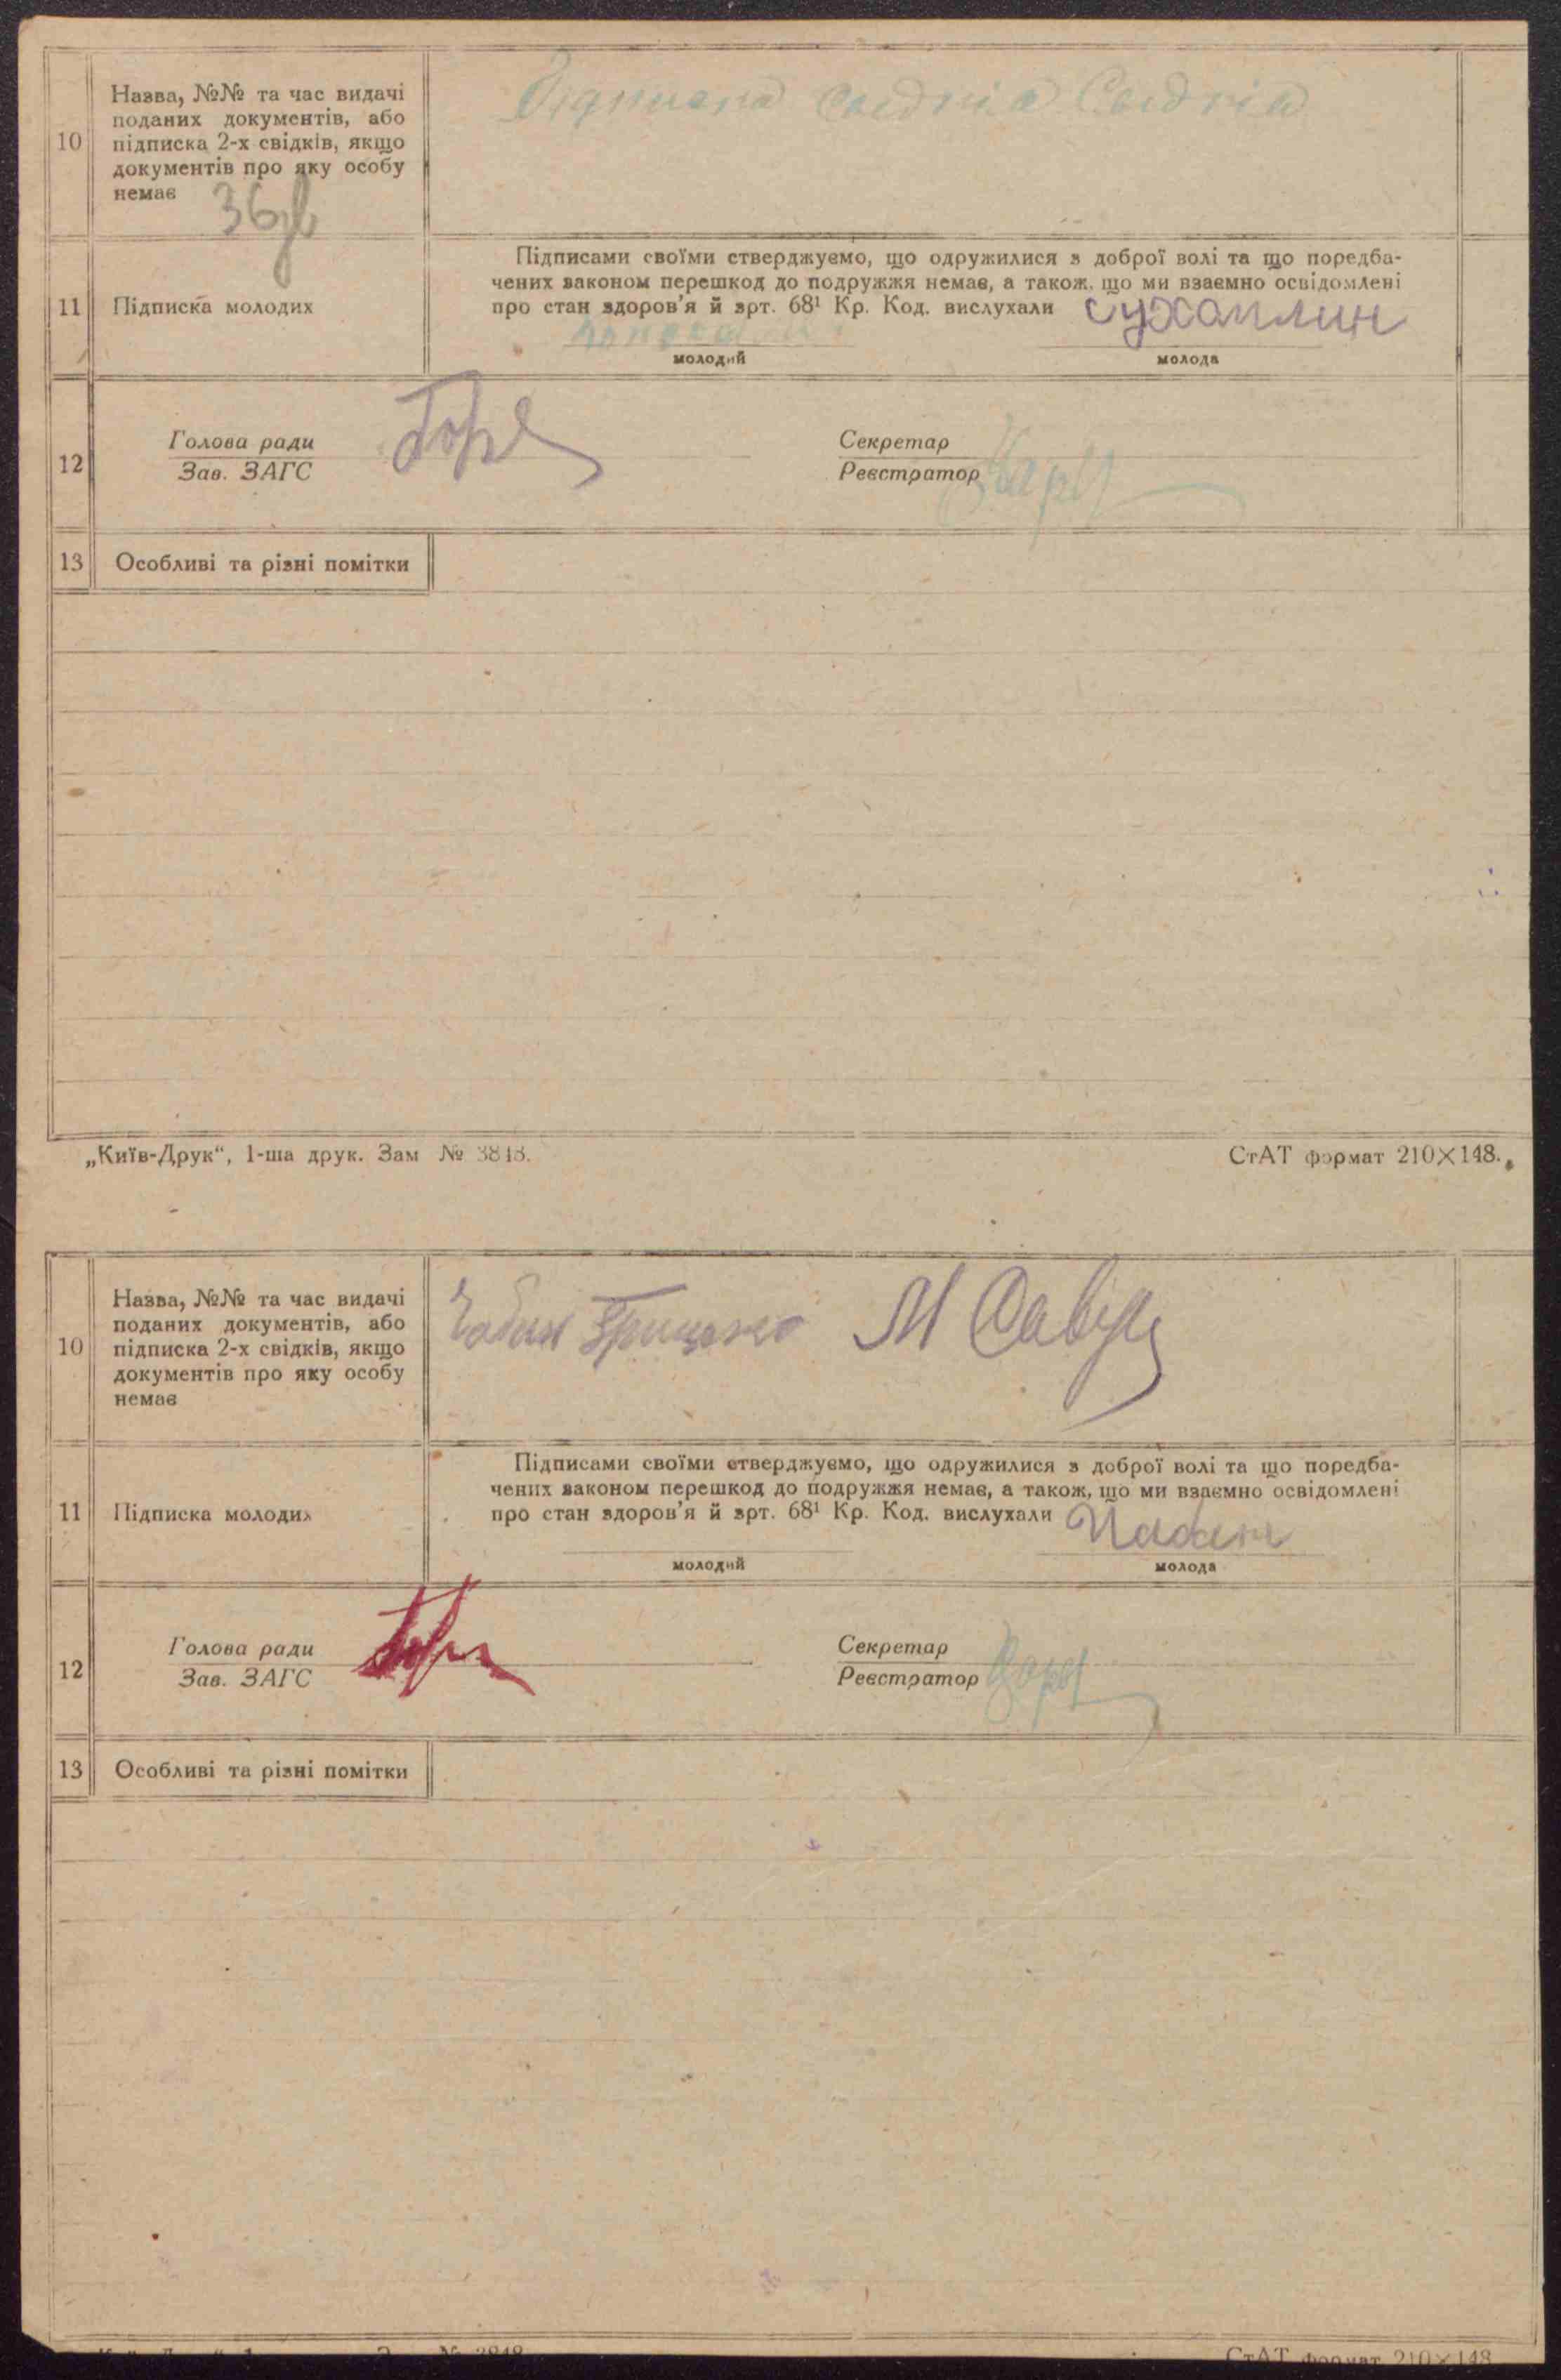 10
Назва, №№ та час видачі
поданих документів, або
підписка 2-х свідків, якщо
документів про яку особу
немає
36
11
Підписка молодих
Підписами своїми стверджуємо, що одружилися з доброї волі та що поредба-
чених законом перешкод до подружжя немає, а також, що ми взаємно освідомлені
про стан здоров'я й арт. 68¹ Кр. Код. вислухали
Сухомлин
молодий
молода
12
Голова ради
Зав. ЗАГС
Секретар
Реєстратор
13
Особливі та різні помітки
„Київ-Друк“, 1-ша друк. Зам № 3848.
СтАТ формат 210×148.
10
Назва, №№ та час видачі
поданих документів, або
підписка 2-х свідків, якщо
документів про яку особу
немає
Грищенко М Савук
11
Підписка молодих
Підписами своїми стверджуємо, що одружилися з доброї волі та що поредба-
чених законом перешкод до подружжя немає, а також, що ми взаємно освідомлені
про стан здоров'я й арт. 68¹ Кр. Код. вислухали
молодий
молода
12
Голова ради
Зав. ЗАГС
Секретар
Реєстратор
13
Особливі та різні помітки
№ 3848
СтАТ формат 210×148